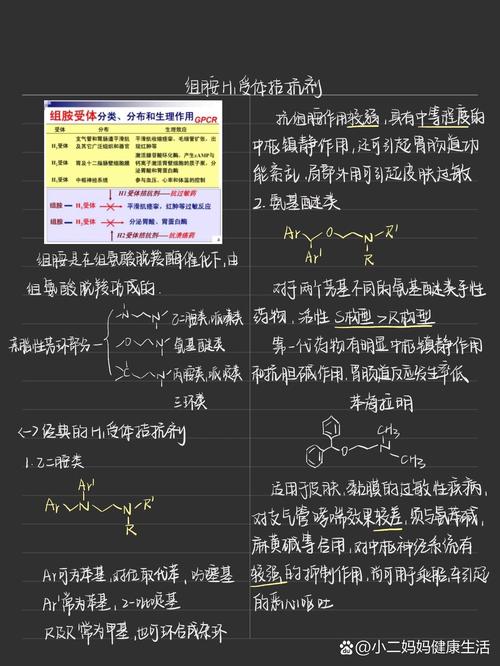 组胺H₁受体拮抗剂
组胺受体分类、分布和生理作用
GPCR
受体 分布 生理效应
H₁受体 支气管和胃肠道平滑肌及其它广泛组织和器官 平滑肌收缩痉挛，毛细管扩张，出现红肿等
H₂受体 胃及十二指肠壁细胞膜 激活腺苷酸环化酶，产生cAMP与钙离子激活胃壁细胞的质子泵，分泌胃酸和胃蛋白酶
H₃受体 中枢神经系统 参与血压、心率和体温的控制
H1受体拮抗剂——抗过敏药
组胺 H₁受体 平滑肌痉挛，红肿等过敏反应
组胺 H₂受体 分泌胃酸、胃蛋白酶
H2受体拮抗剂——抗溃疡药
组胺是在组氨酸脱羧酶催化下，由
组氨酸脱羧形成的.
亲脂性芳环部分
乙二胺类，哌嗪类
氨基醚类
丙胺类，哌啶类
三环类
(一)经典的H₁受体拮抗剂
1.乙二胺类
Ar' Ar N N R' R
Ar可为苯基，对位取代苯，噻嗯基
Ar'常为苯基，2-吡啶基
R及R'常为甲基，也可环合成杂环
抗组胺作用较强，具有中等程度的
中枢镇静作用，还可引起胃肠道功
能紊乱，局部外用可引起皮肤过敏
2.氨基醚类
Ar O N R' Ar' R
对于两个芳基不同的氨基醚类手性
药物，活性 S构型>R构型
第一代药物有明显中枢镇静作用
和抗胆碱作用，胃肠道反应发生率低
苯海拉明
O N CH₃ CH₃
适用于皮肤，黏膜的过敏性疾病，
对支气管哮喘效果较差，须与氨茶碱，
麻黄碱等合用，对中枢神经系统有
较强的抑制作用，尚可用于乘船，车引起
的恶心呕吐
@小二妈妈健康生活